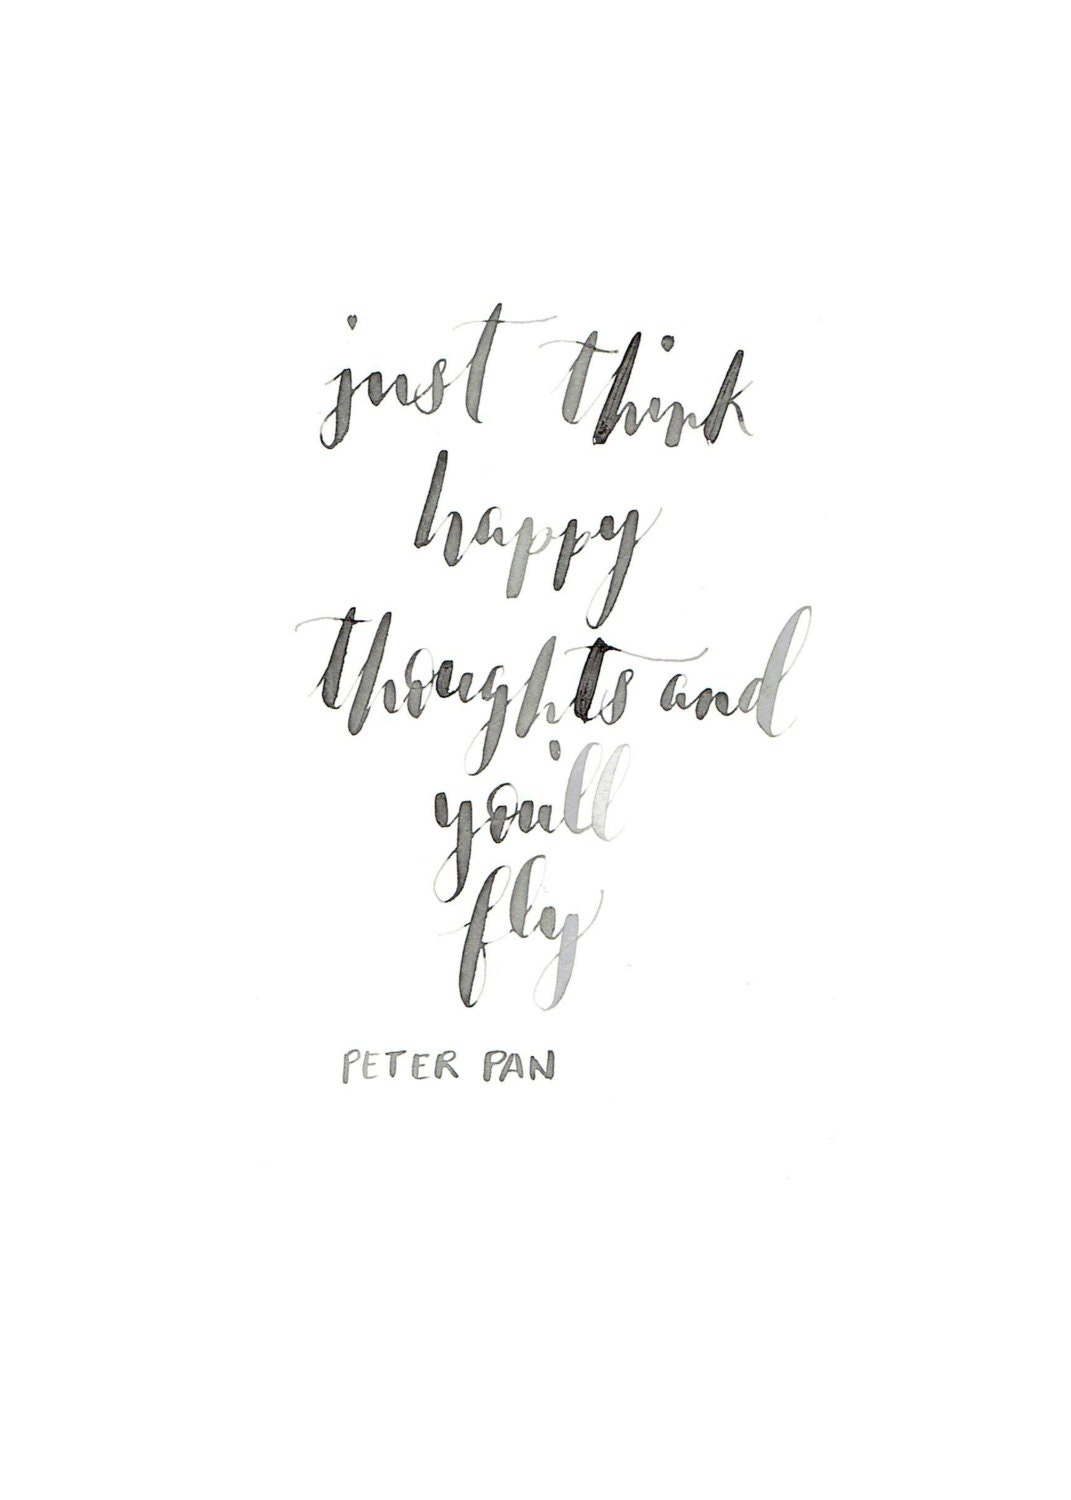 just think
happy
thoughts and
you'll
fly
PETER PAN